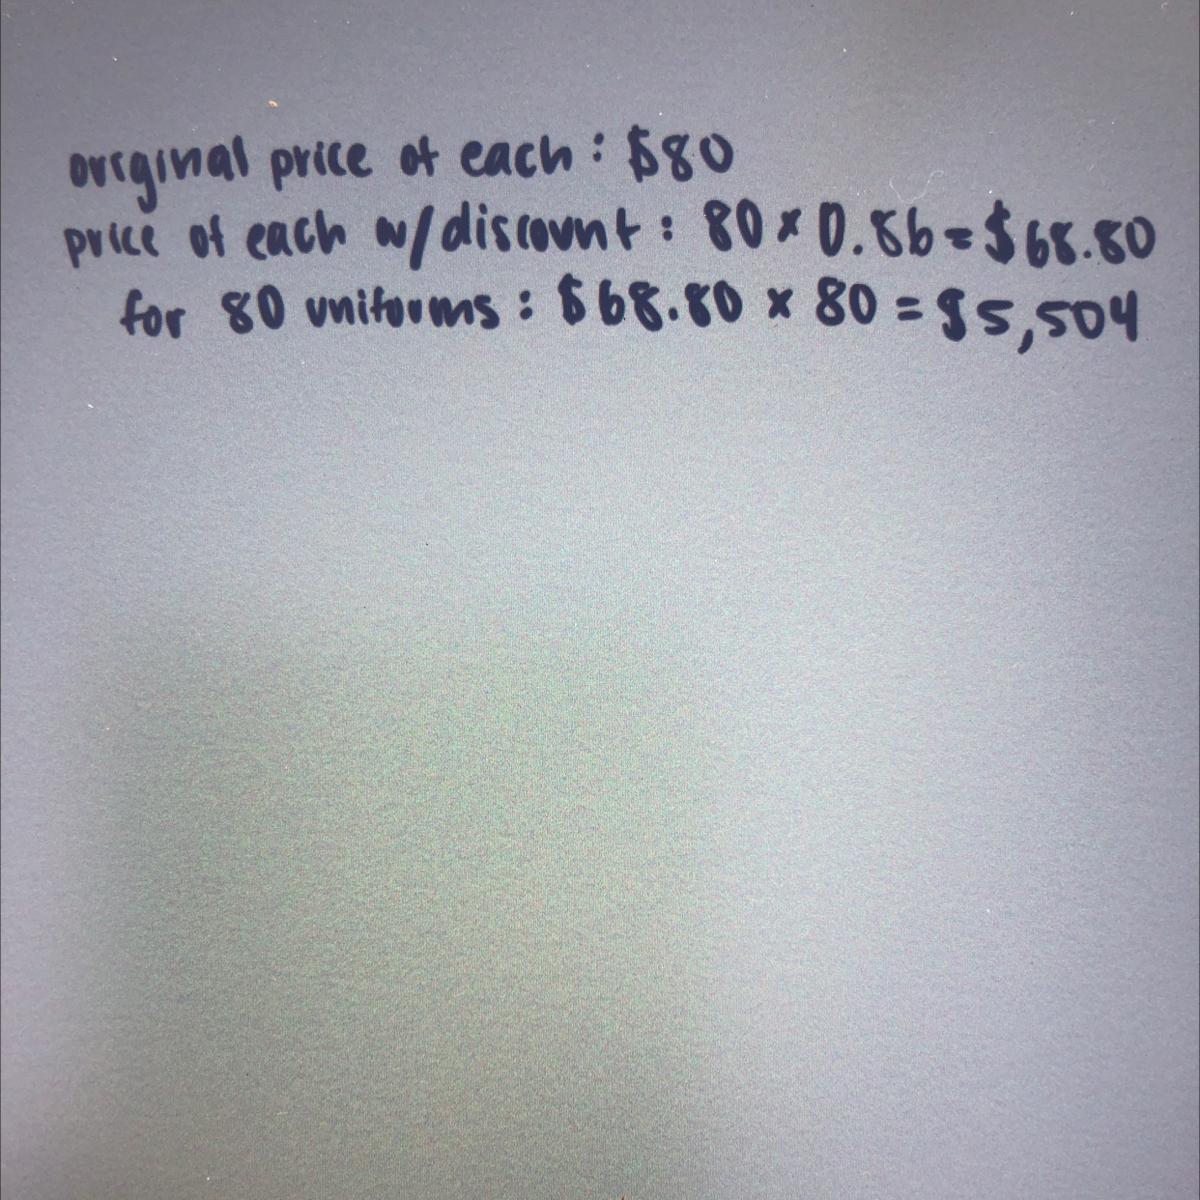 original price of each : $80
price of each w/discount : 80 x 0.86 = $68.80
for 80 uniforms : $68.80 x 80 = $5,504